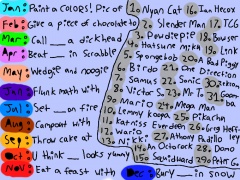 Jan: Paint a COLORS! Pic of
Feb: Give a piece of chocolate to
Mar: Call a dickhead
Apr: Beat in Scrabble
May: Wedgie and noogie
Jun: Flunk math with
Jul: Set on fire
Aug: Campout with
Sep: Throw cake at
Oct: U think looks yummy
Nov: Eat a feast with
Dec: Bury in snow
1. Nyan Cat
2. Slender Man
3. Pewdiepie
4. Hatsune miku
5. Spongebob
6. Birdo
7. Samus
8. Victor S.
9. Mario
10. Lemmy Koopa
11. Katniss Everdeen
12. Wario
13. Nikki
14. Dr Octorock
15. Squidward
16. Ian Hecox
17. TCG
18. Bowser
19. Link
20. A Rad Piggy
21. One Direction
22. Sonic
23. Mr T
24. Mega Man
25.
26. Greg Heff
27. Anthony Padilla
28.
29. Peter G.
30.
31. Goomba